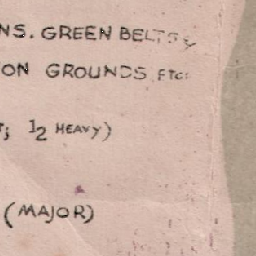 NS. GREEN BELTS,
ON GROUNDS, ETC.
; 12 HEAVY)
(MAJOR)